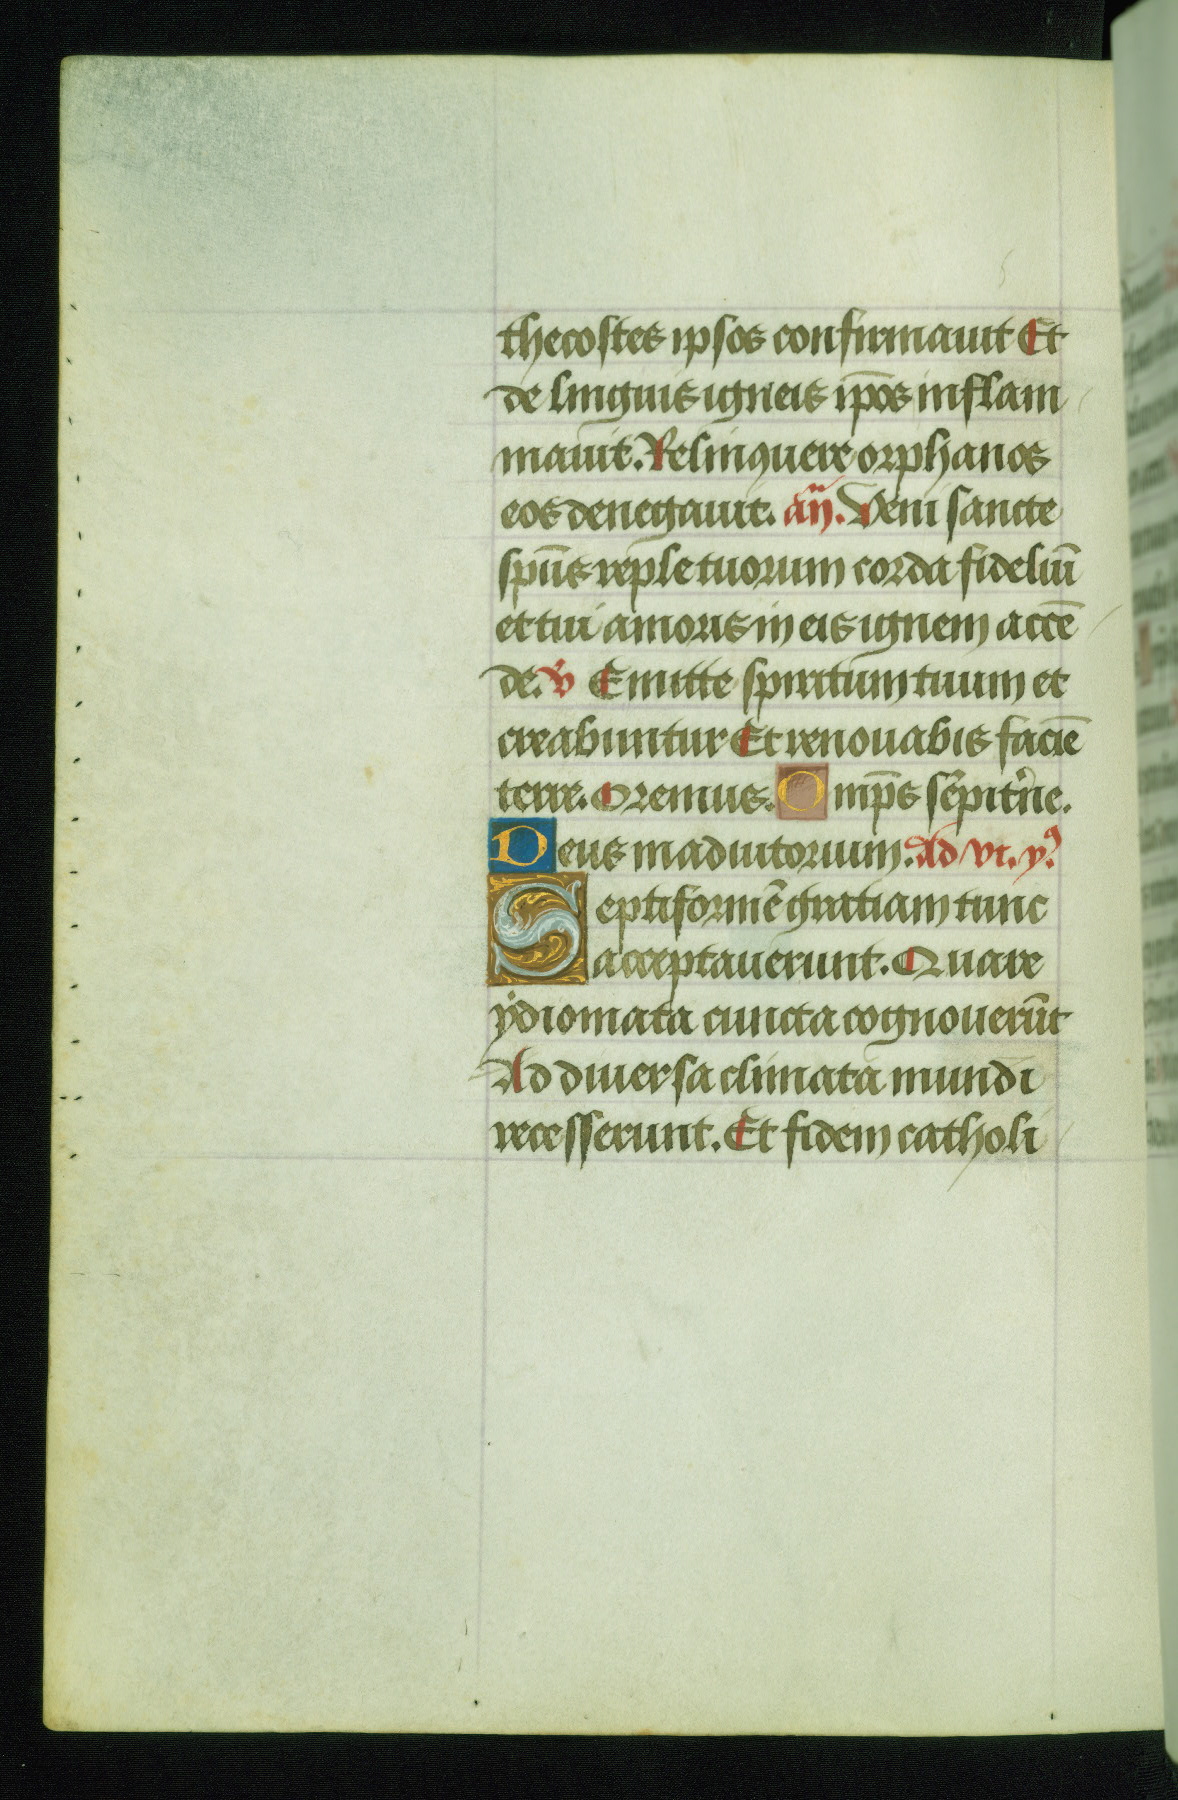 thecostes ipsos confirmauit Et
de linguis igneis ip̄os inflam
mauit. Relinquere orphanos
eos denegauit. an̄. Veni sancte
sp̄us reple tuorum corda fideliū
et tui amoris in eis ignem accē
de. v̇ Emitte spiritum tuum et
creabuntur Et renouabis faciē
terre. Oremus. Omp̄s sēpit̄ne.
Deus in adiutorium. Ad vi. yꝰ.
Septiformē gratiam tunc
acceptauerunt. Quare
ydiomata cuncta cognouerūt
Ad diuersa climata mundi
recesserunt. Et fidem catholi